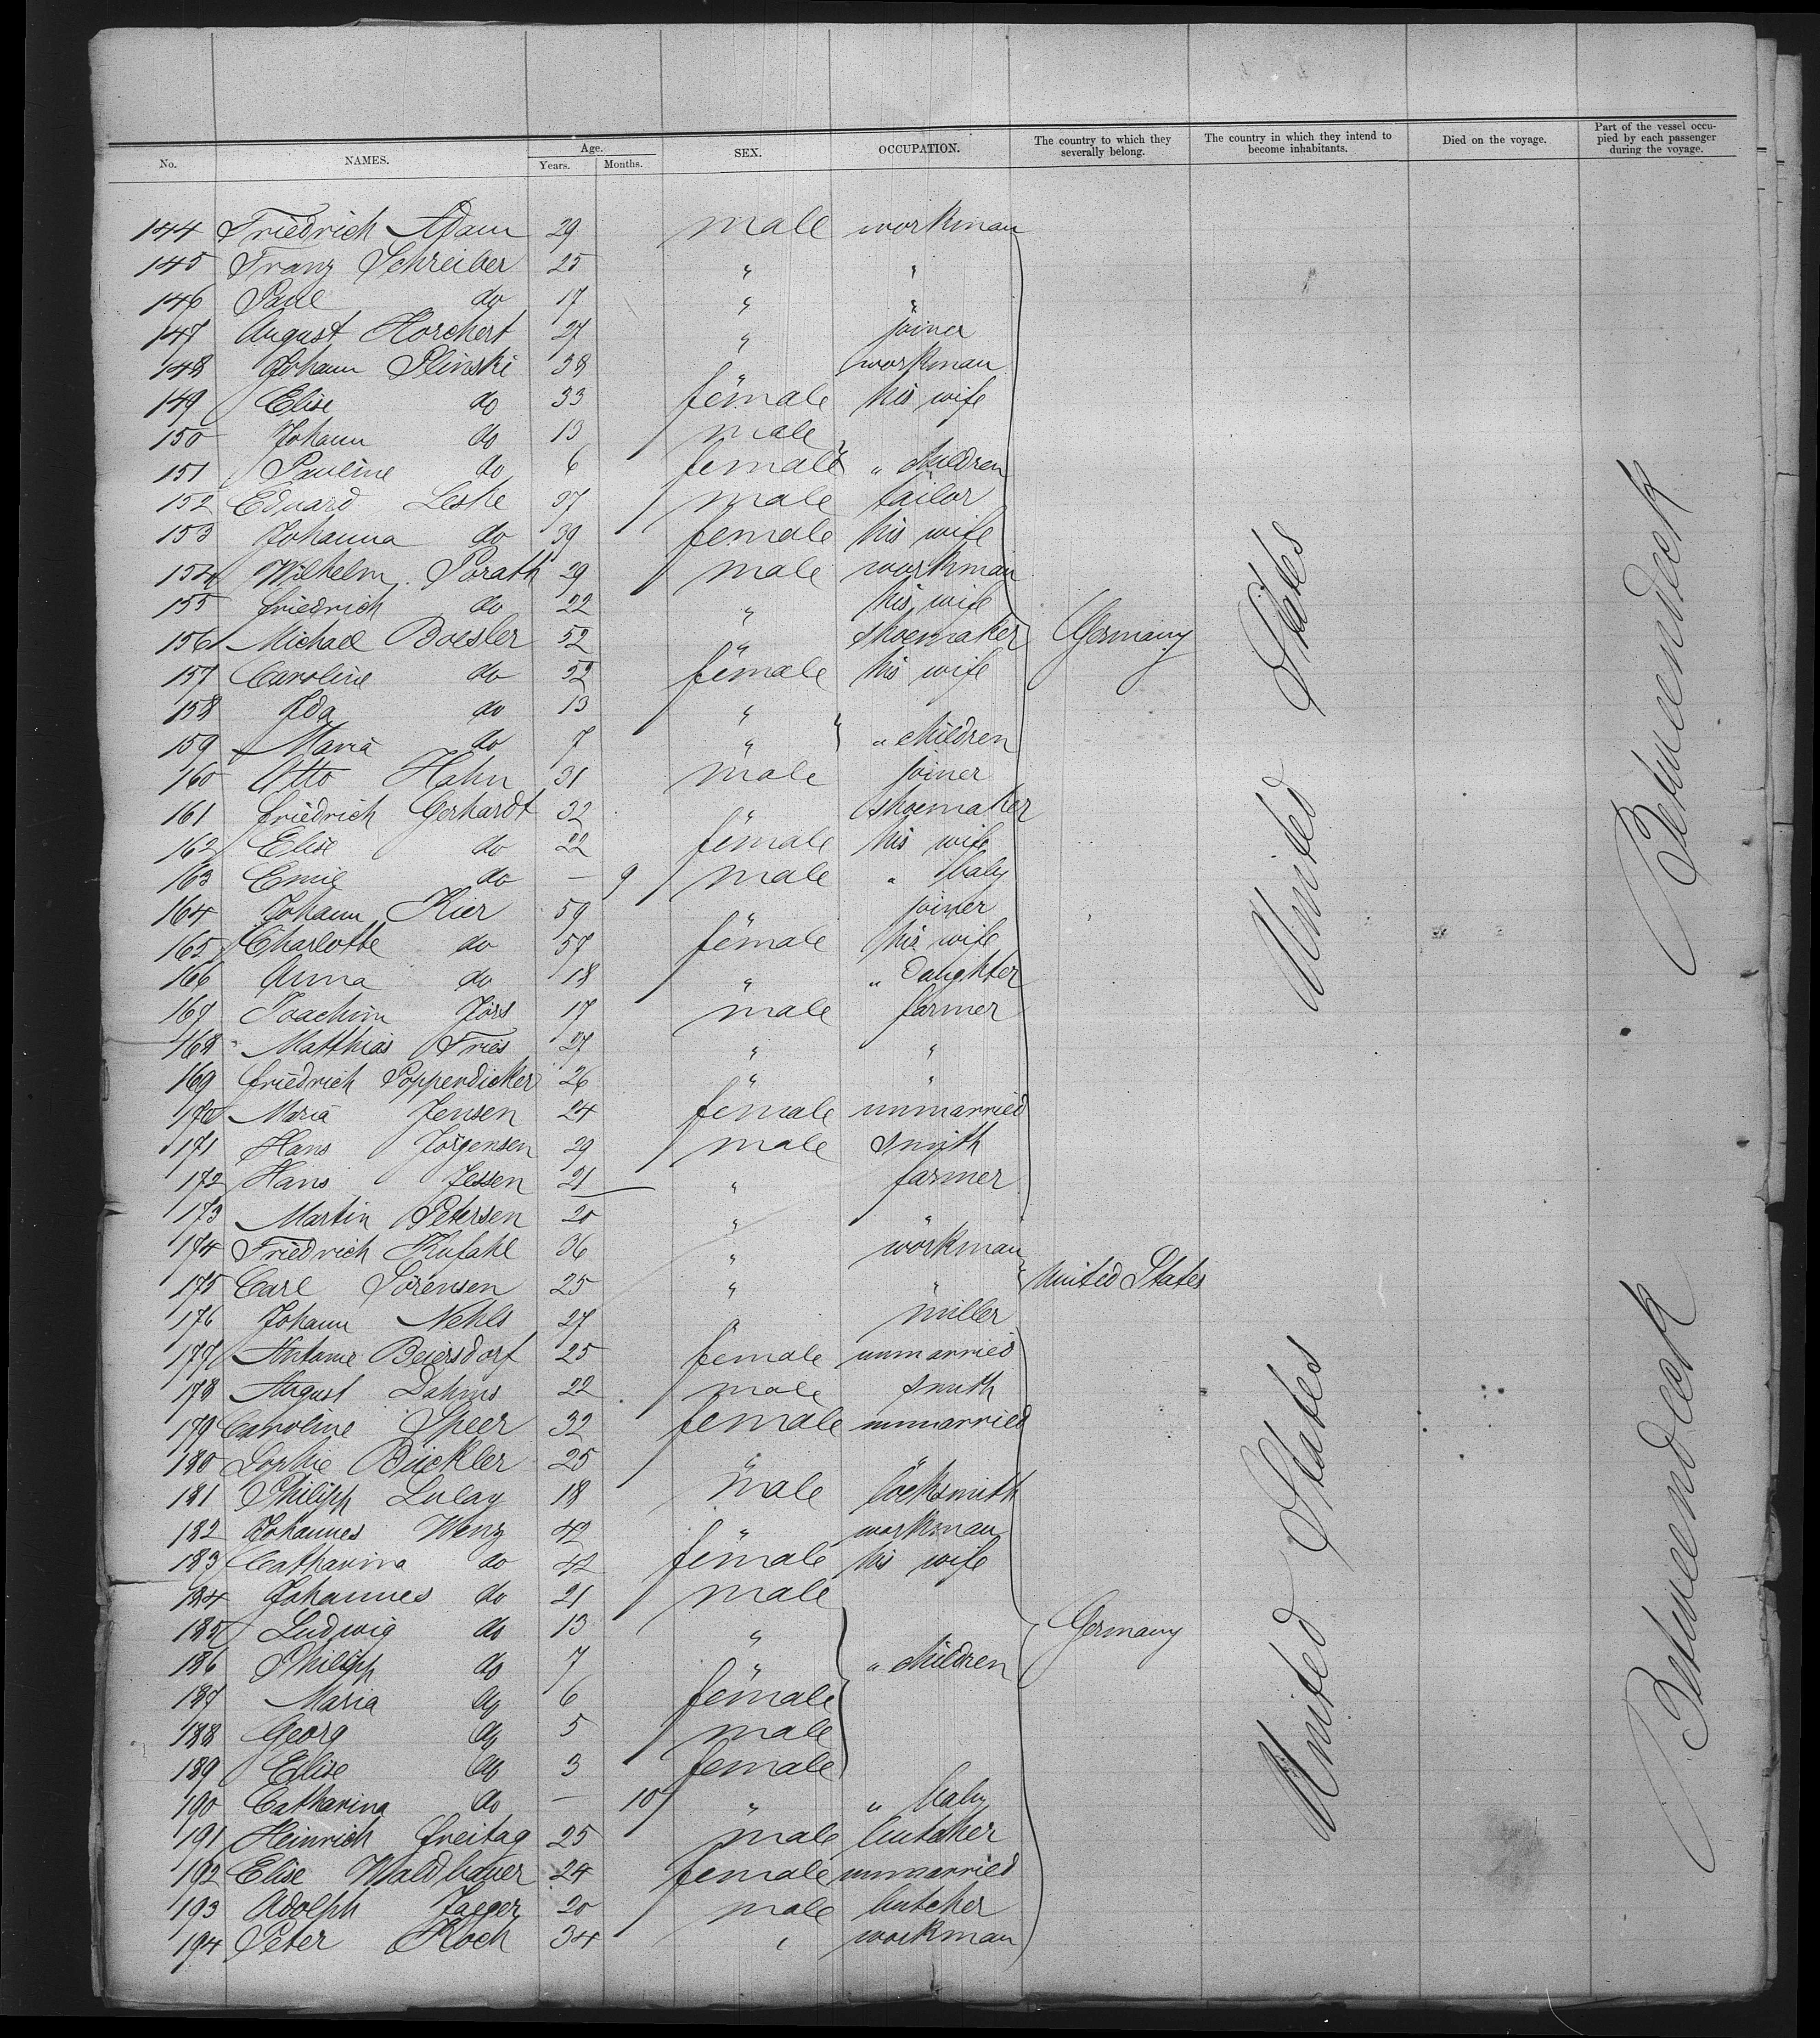 No. NAMES. Age. Years. Months. SEX. OCCUPATION. The country to which they severally belong. The country in which they intend to become inhabitants. Died on the voyage. Part of the vessel occupied by each passenger during the voyage.
144 Friedrich Adam 29 male workman
145 Franz Schreiber 25 " "
146 Paul do 17 " "
147 August Horchert 27 " joiner
148 Johann Plinski 38 " workman
149 Elise do 33 female his wife
150 Johann do 13 male
151 Pauline do 6 female " children
152 Eduard Leske 37 male tailor
153 Johanna do 39 female his wife
154 Wilhelm Porath 29 male workman
155 Friedrich do 22 " his wife
156 Michael Boesler 52 " shoemaker Germany
157 Caroline do 52 female his wife
158 Ida do 13 "
159 Maria do 7 " " children
160 Otto Hahn 31 male joiner
161 Friedrich Gerhardt 32 " shoemaker
162 Elise do 22 female his wife
163 Emil do — 9 male " baby
164 Johann Kier 59 " joiner
165 Charlotte do 57 female his wife
166 Anna do 18 " " daughter
167 Joachim Jörs 17 male farmer
168 Matthias Fries 27 " "
169 Friedrich Poppendicker 26 " "
170 Maria Jensen 24 female unmarried
171 Hans Jörgensen 29 male smith
172 Hans Jessen 21 " farmer
173 Martin Petersen 20 " "
174 Friedrich Kufahl 36 " workman
175 Carl Sörensen 25 " " United States
176 Johann Nehls 27 " miller
177 Antonie Beiersdorf 25 female unmarried
178 August Dahms 22 male smith
179 Caroline Speer 32 female unmarried
180 Sophie Bückler 25 " "
181 Philipp Lulay 18 male locksmith
182 Johannes Wenz 42 " workman
183 Catharina do 42 female his wife
184 Johannes do 21 male
185 Ludwig do 13 " Germany
186 Philipp do 7 " " children
187 Maria do 6 female
188 Georg do 5 male
189 Elise do 3 female
190 Catharina do — 10 " " baby
191 Heinrich Freitag 25 male butcher
192 Elise Waldbauer 24 female unmarried
193 Adolph Jaeger 20 male butcher
194 Peter Koch 34 " workman
United States
United States
Betweendeck
Betweendeck